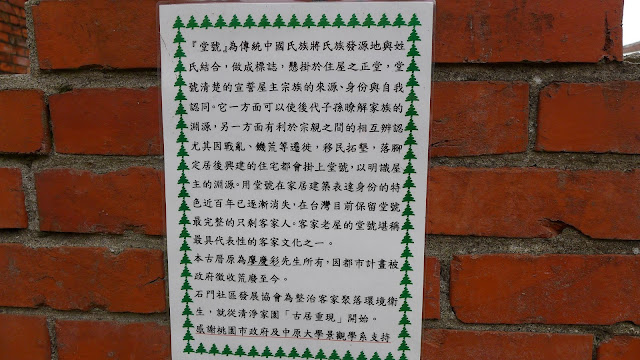 『堂號』為傳統中國民族將氏族發源地與姓
氏結合，做成標誌，懸掛於住屋之正堂，堂
號清楚的宣誓屋主宗族的來源、身份與自我
認同。它一方面可以使後代子孫瞭解家族的
淵源，另一方面有利於宗親之間的相互辨認
尤其因戰亂、饑荒等遷徙，移民拓墾，落腳
定居後興建的住宅都會掛上堂號，以明識屋
主的淵源。用堂號在家居建築表達身份的特
色近百年已逐漸消失，在台灣目前保留堂號
最完整的只剩客家人。客家老屋的堂號堪稱
最具代表性的客家文化之一。
本古厝原為廖慶彩先生所有，因都市計畫被
政府徵收荒廢至今。
石門社區發展協會為整治客家聚落環境衛
生，就從清淨家園「古居重現」開始。
感謝桃園市政府及中原大學景觀學系支持